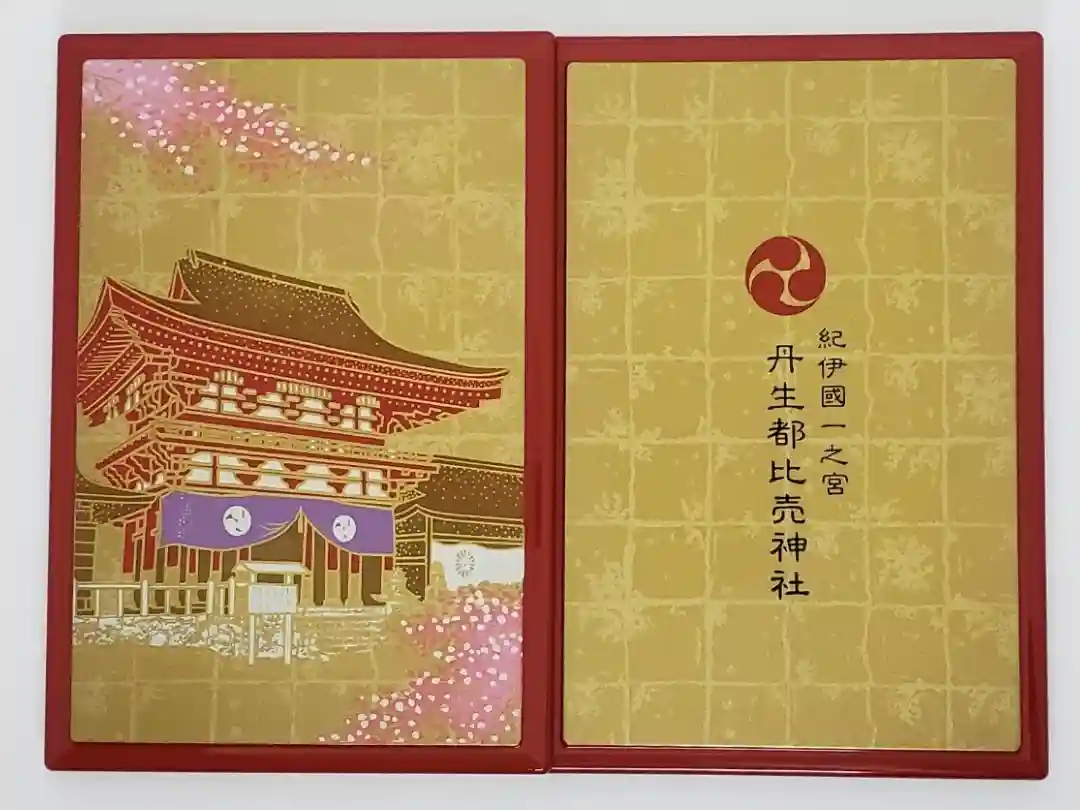 紀伊國一之宮
丹生都比売神社